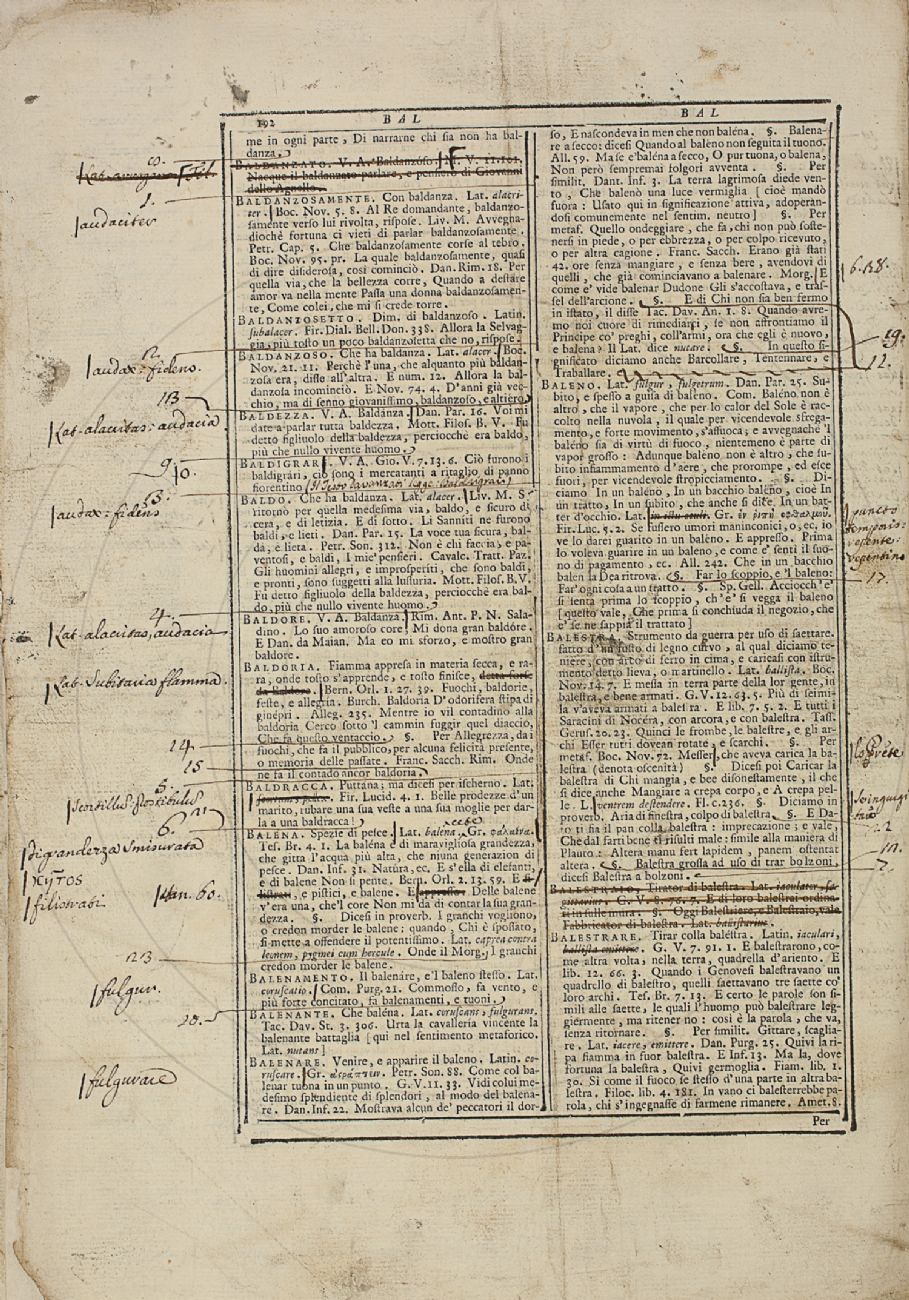 192 BAL BAL
me in ogni parte, Di narrarne chi sia non ha bal-
danza.
BALDANZATO. V. A. Baldanzoso. M. V. 11. 101.
Nacque il baldanzato parlare, e pensiero di Giovanni
dello Agnello.
BALDANZOSAMENTE. Con baldanza. Lat. alacri-
ter. Boc. Nov. 5. 8. Al Re domandante, baldanzo-
samente verso lui rivolta, rispose. Liv. M. Avvegna-
diochè fortuna ci vieti di parlar baldanzosamente.
Petr. Cap. 5. Che baldanzosamente corse al tebro.
Boc. Nov. 95. pr. La quale baldanzosamente, quasi
di dire disiderosa, così cominciò. Dan. Rim. 18. Per
quella via, che la bellezza corre, Quando a destare
amor va nella mente Passa una donna baldanzosamen-
te, Come colei, che mi si crede torre.
BALDANZOSETTO. Dim. di baldanzoso. Latin.
subalacer. Fir. Dial. Bell. Don. 338. Allora la Selvag-
gia, più tosto un poco baldanzosetta che no, rispose.
BALDANZOSO. Che ha baldanza. Lat. alacer. Boc.
Nov. 21. 11. Perchè l'una, che alquanto più baldan-
zosa era, disse all'altra. E num. 12. Allora la bal-
danzosa incominciò. E Nov. 74. 4. D'anni già vec-
chio, ma di senno giovanissimo, baldanzoso, e altiero.
BALDEZZA. V. A. Baldanza. Dan. Par. 16. Voi mi
date a parlar tutta baldezza. Mott. Filos. B. V. Fu
detto figliuolo della baldezza, perciocchè era baldo,
più che nullo vivente huomo.
BALDIGRARI. V. A. Gio. V. 7. 13. 6. Ciò furono i
baldigrari, ciò sono i mercatanti a ritaglio di panno
fiorentino
BALDO. Che ha baldanza. Lat. alacer. Liv. M. S'
ritornò per quella medesima via, baldo, e sicuro di
cera, e di letizia. E di sotto. Li Sanniti ne furono
baldi, e lieti. Dan. Par. 15. La voce tua sicura, bal-
da, e lieta. Petr. Son. 312. Non è chi faccia, e pa-
ventosi, e baldi, I mie' pensieri. Cavalc. Tratt. Paz.
Gli huomini allegri, e improsperiti, che sono baldi,
e pronti, sono suggetti alla lussuria. Mott. Filos. B. V.
Fu detto figliuolo della baldezza, perciocchè era bal-
do, più che nullo vivente huomo.
BALDORE. V. A. Baldanza. Rim. Ant. P. N. Sala-
dino. Lo suo amoroso core Mi dona gran baldore.
E Dan. da Maian. Ma eo mi sforzo, e mostro gran
baldore.
BALDORIA. Fiamma appresa in materia secca, e ra-
ra, onde tosto s'apprende, e tosto finisce, detta forse
da Baldore. Bern. Orl. 1. 27. 39. Fuochi, baldorie,
feste, e allegria. Burch. Baldoria D'odorifera stipa di
ginepri. Alleg. 235. Mentre io vil contadino alla
baldoria Cerco sotto 'l cammin fuggir quel diaccio,
Che fa questo ventaccio. §. Per Allegrezza, da i
fuochi, che fa il pubblico, per alcuna felicità presente,
o memoria delle passate. Franc. Sacch. Rim. Onde
ne fa il contado ancor baldoria.
BALDRACCA. Puttana; ma dicesi per ischerno. Lat.
Fir. Lucid. 4. 1. Belle prodezze d'un
marito, rubare una sua veste a una sua moglie per dar-
la a una baldracca!
BALENA. Spezie di pesce. Lat. balena. Gr. φάλαινα.
Tes. Br. 4. 1. La balena è di maravigliosa grandezza,
che gitta l'acqua più alta, che niuna generazion di
pesce. Dan. Inf. 31. Natura, ec. E s'ella di elefanti,
e di balene Non si pente. Bern. Orl. 2. 13. 59. E
e pistrici, e balene. E appresso. Delle balene
v'era una, che'l core Non mi dà di contar la sua gran-
dezza. §. Dicesi in proverb. I granchi vogliono,
o credon morder le balene: quando, Chi è spossato,
si mette a offendere il potentissimo. Lat. caprea contra
leonem, pigmei cum hercule. Onde il Morg. I granchi
credon morder le balene.
BALENAMENTO. Il balenare, e'l baleno stesso. Lat.
coruscatio. Com. Purg. 21. Commosso, fa vento, e
più forte concitato, fa balenamenti, e tuoni.
BALENANTE. Che baléna. Lat. coruscans, fulgurans.
Tac. Dav. St. 3. 306. Urta la cavalleria vincente la
balenante battaglia [qui nel sentimento metaforico.
Lat. nutans]
BALENARE. Venire, e apparire il baleno. Latin. co-
ruscare. Gr. ἀστράπτειν. Petr. Son. 88. Come col ba-
lenar tuona in un punto. G. V. 11. 33. Vidi colui me-
desimo splendiente di splendori, al modo del balena-
re. Dan. Inf. 22. Mostrava alcun de' peccatori il dor-
so, E nascondeva in men che non baléna. §. Balena-
re a secco: dicesi Quando al baleno non seguita il tuono.
All. 59. Ma se e'baléna a secco, O pur tuona, o balena,
Non però sempremai folgori avventa. §. Per
similit. Dant. Inf. 3. La terra lagrimosa diede ven-
to, Che balenò una luce vermiglia [cioè mandò
fuora: Usato qui in significazione attiva, adoperan-
dosi comunemente nel sentim. neutro] §. Per
metaf. Quello ondeggiare, che fa, chi non può soste-
nersi in piede, o per ebbrezza, o per colpo ricevuto,
o per altra cagione. Franc. Sacch. Erano già stati
42. ore senza mangiare, e senza bere, avendovi di
quelli, che già cominciavano a balenare. Morg. E
come e' vide balenar Dudone Gli s'accostava, e tras-
sel dell'arcione. §. E di Chi non sia ben fermo
in istato, il disse Tac. Dav. An. 1. 8. Quando avre-
mo noi cuore di rimediarci, se non affrontiamo il
Principe co' preghi, coll'armi, ora che egli è nuovo,
e balena? Il Lat. dice nutare. §. In questo si-
gnificato diciamo anche Barcollare, Tentennare, e
Traballare.
BALENO. Lat. fulgur, fulgetrum. Dan. Par. 25. Su-
bito, e spesso a guisa di baleno. Com. Baléno non è
altro, che il vapore, che per lo calor del Sole è rac-
colto nella nuvola, il quale per vicendevole sfrega-
mento, e forte movimento, s'affuoca; e avvegnachè 'l
baléno sia di virtù di fuoco, nientemeno è parte di
vapor grosso: Adunque baléno non è altro, che su-
bito infiammamento d'aere, che prorompe, ed esce
fuori, per vicendevole stropicciamento. §. Di-
ciamo In un baléno, In un bacchio baléno, cioè In
un tratto, In un subito, che anche si dice In un bat-
ter d'occhio. Lat. in ictu oculi. Gr. ἐν ῥιπῇ ὀφθαλμοῦ.
Fir. Luc. 5. 2. Se fussero umori maninconici, o, ec, io
ve lo darei guarito in un baléno. E appresso. Prima
lo voleva guarire in un baleno, e come e' senti il suo-
no di pagamento, ec. All. 242. Che in un bacchio
balen la Dea ritrova. §. Far lo scoppio, e 'l baleno:
Far'ogni cosa a un tratto. §. Sp. Gell. Acciocch'e'
si senta prima lo scoppio, ch'e' si vegga il baleno
[questo vale, Che prima si conchiuda il negozio, che
e' se ne sappia il trattato]
BALESTRA. Strumento da guerra per uso di saettare.
fatto d'un fusto di legno curvo, al qual diciamo te-
niere, con arco di ferro in cima, e caricasi con istru-
mento detto lieva, o martinello. Lat. ballista. Boc.
Nov. 14. 7. E messa in terra parte della lor gente, in
balestra, e bene armati. G. V. 12. 63. 5. Più di seimi-
la v'aveva armati a balestra. E lib. 7. 5. 2. E tutti i
Saracini di Nocéra, con arcora, e con balestra. Tass.
Gerus. 20. 23. Quinci le frombe, le balestre, e gli ar-
chi Esser tutti dovean rotate, e scarchi. §. Per
metaf. Boc. Nov. 72. Messer, che aveva carica la ba-
lestra (denota oscenità) §. Dicesi poi Caricar la
balestra di Chi mangia, e bee disonestamente, il che
si dice anche Mangiare a crepa corpo, e A crepa pel-
le. L. ventrem distendere. Fl. c. 236. §. Diciamo in
proverb. Aria di finestra, colpo di balestra. §. E Da-
io ti sia il pan colla balestra: imprecazione; e vale,
Che dal farti bene ti risulti male: simile alla maniera di
Plauto: Altera manu fert lapidem, panem ostentat
altera. §. Balestra grossa ad uso di trar bolzoni,
dicesi Balestra a bolzoni.
BALESTRAIO. Tirator di balestra. Lat. iaculator, sa-
gittarius. G. V. 8. 76. 7. E di loro balestrai ordina-
ti in sulle mura. §. Oggi Balestriere, e Balestraio, vale
Fabbricator di balestra. Lat.
BALESTRARE. Tirar colla baléstra. Latin. iaculari,
ballista emittere. G. V. 7. 91. 1. E balestrarono, co-
me altra volta, nella terra, quadrella d'ariento. E
lib. 12. 66. 3. Quando i Genovesi balestravano un
quadrello di balestro, quelli saettavano tre saette co'
loro archi. Tes. Br. 7. 13. E certo le parole son si-
mili alle saette, le quali l'huomo può balestrare leg-
giérmente, ma ritener no: così è la parola, che va,
senza ritornare. §. Per similit. Gittare, scaglia-
re. Lat. iacere, emittere. Dan. Purg. 25. Quivi la ri-
pa fiamma in fuor balestra. E Inf. 13. Ma la, dove
fortuna la balestra, Quivi germoglia. Fiam. lib. 1.
30. Si come il fuoco se stesso d'una parte in altra ba-
lestra. Filoc. lib. 4. 181. In vano ci balestrerebbe pa-
rola, chi s'ingegnasse di farmene rimanere. Amet. 8.
Per
audaciter
audax: fidens.
Lat. alacritas: audacia
audax: fidens
Lat. alacritas, audacia
Lat. Subitaria flamma.
14.
15
scortillum, prostibulum
di grandezza smisurata
κῆτος
fulgur.
fulgurare
12.
puncto
temporis:
repente:
repentino
17.